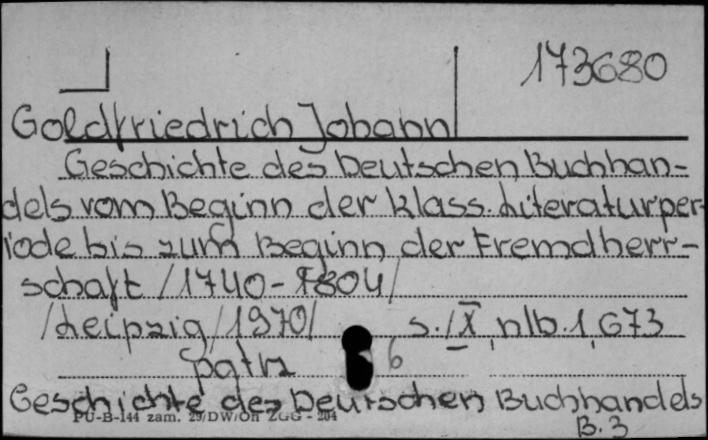 173680
Goldfriedrich Johann
Geschichte des Deutschen Buchhan-
dels vom Beginn der klass. Literaturper-
iode bis zum Beginn der Fremdherr-
schaft /1740-1804/
/Leipzig/1970/ s./X, nlb.1,673
6
Geschichte des Deutschen Buchhandels
B.3
PU-B-144 zam. 29/DW/On ZGG - 204